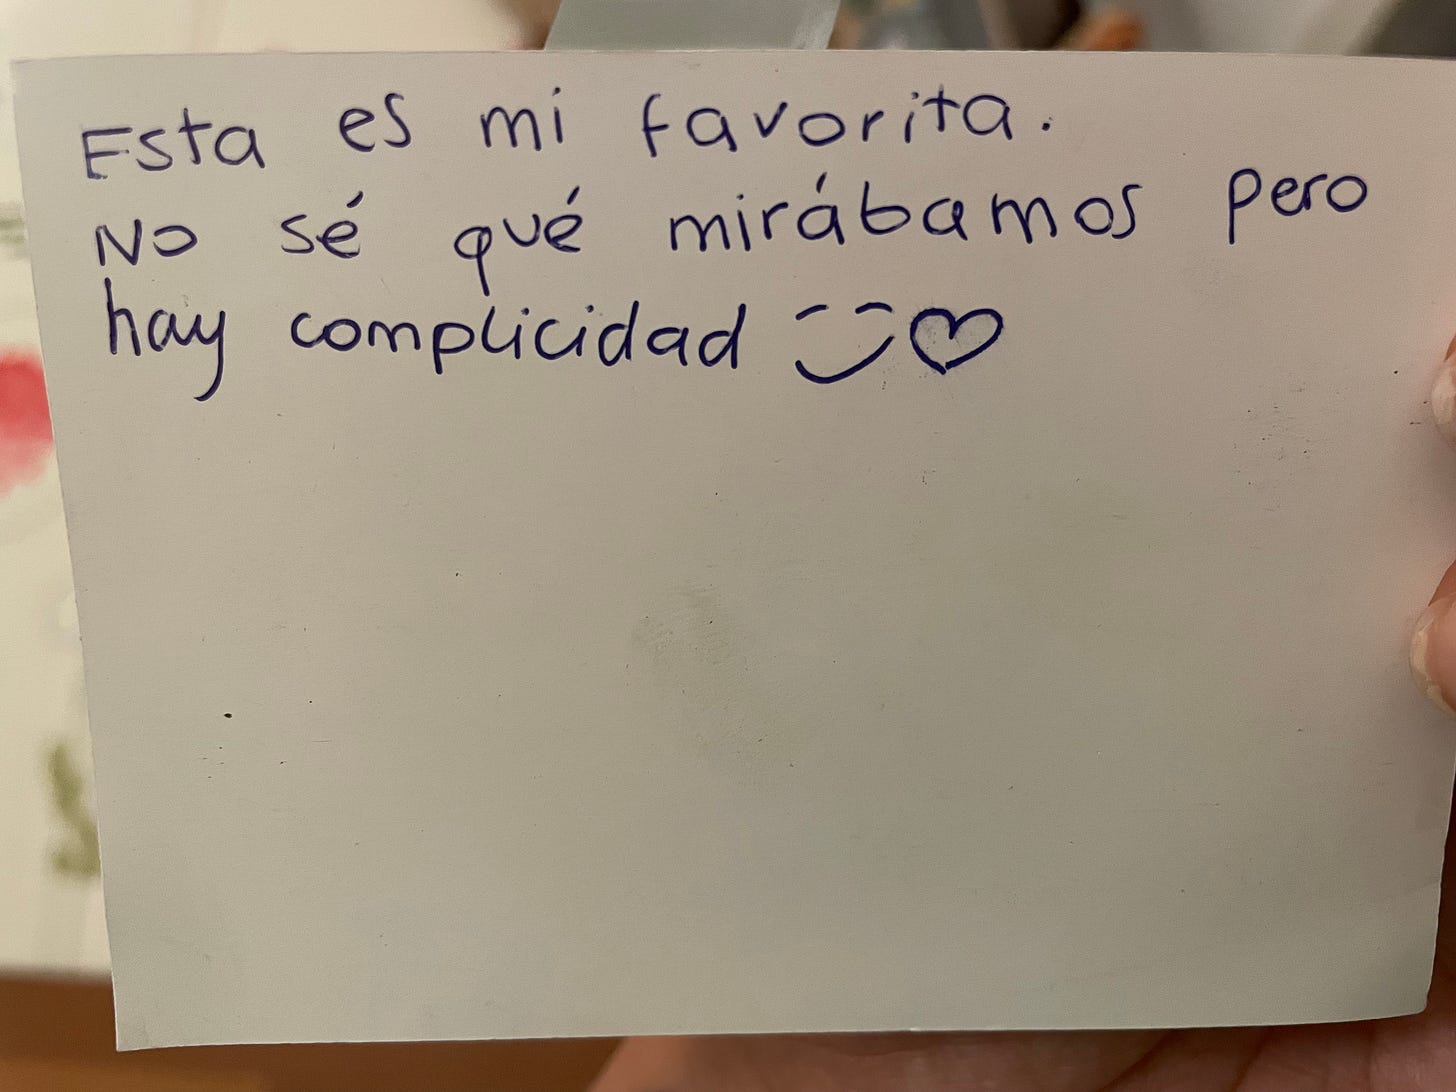 Esta es mi favorita.
No sé qué mirábamos pero
hay complicidad